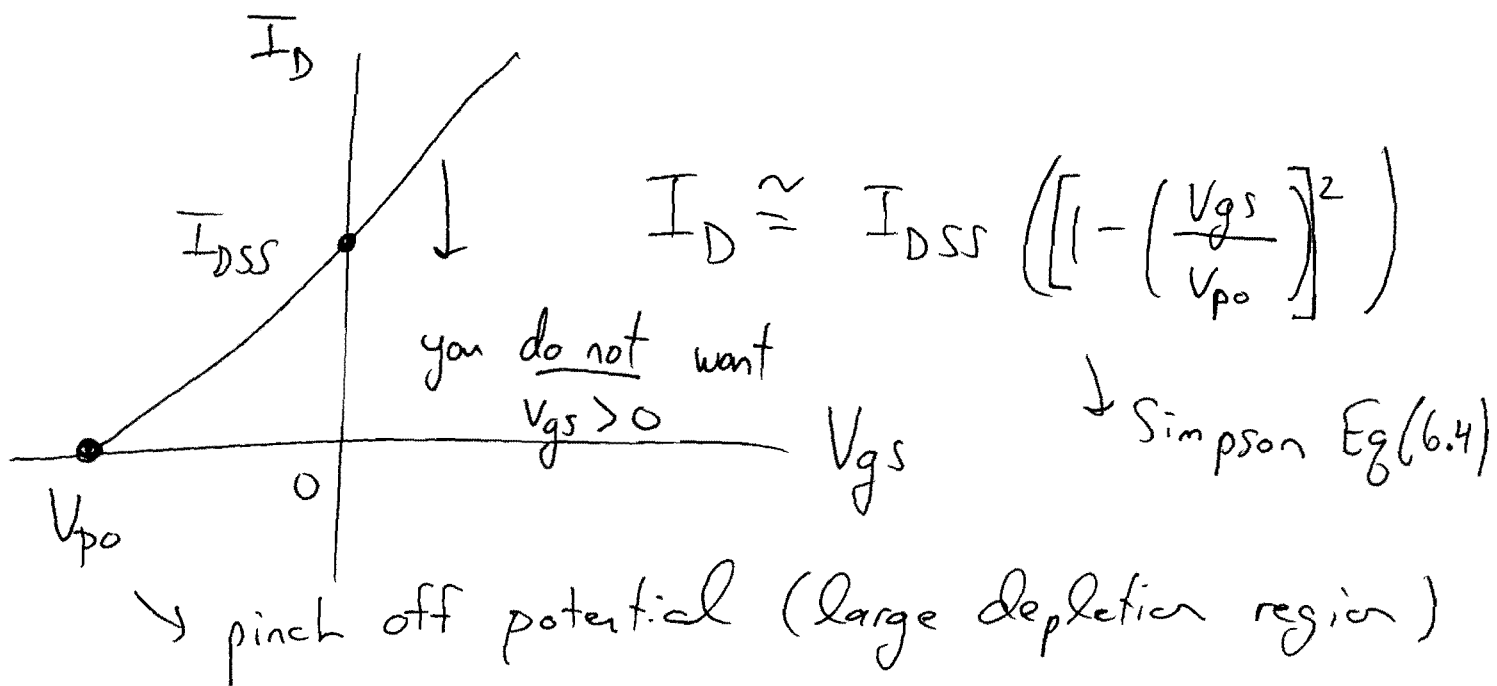 I_D
I_DSS
I_D ≅ I_DSS ([1 - (Vgs / Vpo)]²)
you do not want
Vgs > 0
↓ Simpson Eq (6.4)
Vgs
0
Vpo
↘ pinch off potential (large depletion region)